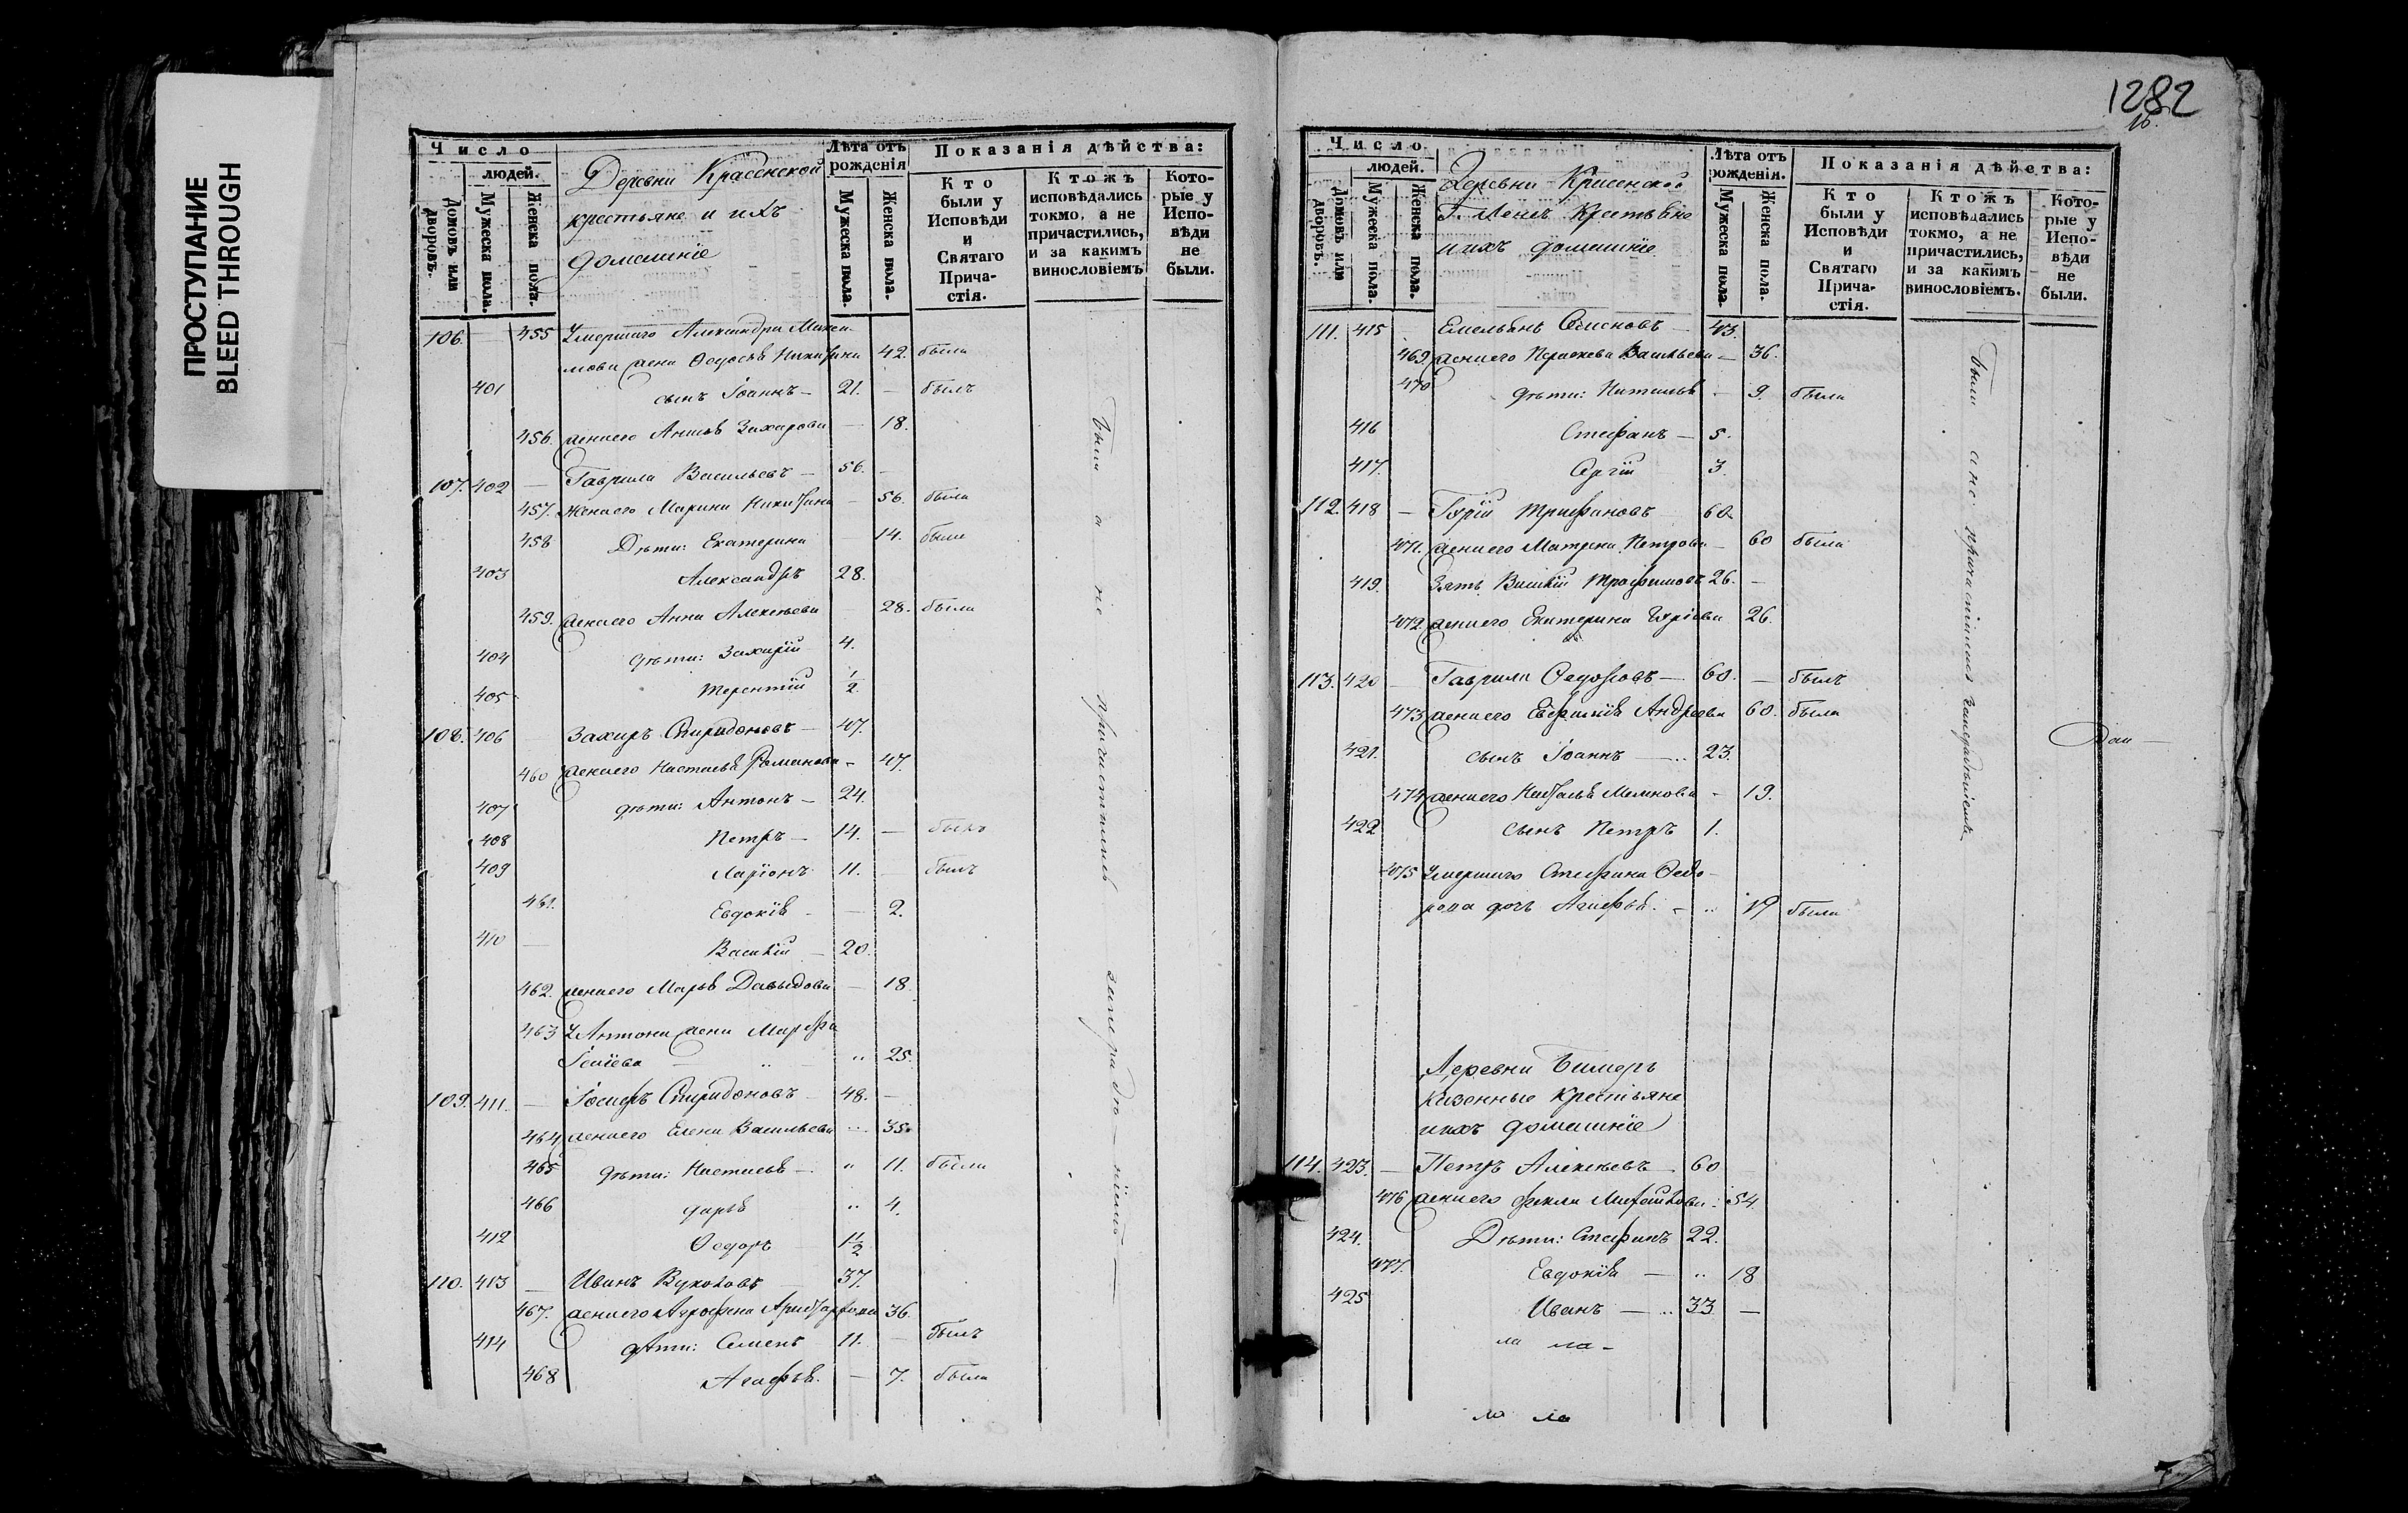 ПРОСТУПАНИЕ
BLEED THROUGH
1282
Число
людей.
Домовъ или дворовъ.
Мужеска пола.
Женска пола.
Деревни Красенской
крестьяне и ихъ
домашніе
Лѣта отъ рожденія
Мужеска пола.
Женска пола.
Показанія дѣйства:
Кто были у Исповѣди и Святаго Прича-стія.
Ктожъ исповѣдались токмо, а не причастились, и за какимъ винословіемъ
Кото-рые у Испо-вѣди не были.
106. — 455 Умершаго Александра Макси
мова жена Ѳедосья Никитина 42. была
401 сынъ Іоаннъ — 21. — былъ
456. жена его Анисья Захарова — 18.
107. 402 — Гаврила Васильевъ — 56. —
457. жена его Марина Никитина — 56. была
458 Дѣти: Екатерина 14. была
403 Александръ 28.
459. жена его Анна Алексѣева 28. была
404 дѣти: Захарій 4.
405 Терентій 1/2
108. 406 Захаръ Спиридоновъ — 47.
460 жена его Настасья Романова — 47.
407 дѣти: Антонъ — 24.
408 Петръ — 14. — былъ
409 Ларіонъ 11. — былъ
461. Евдокія — 2.
410 — Василій — 20.
462. жена его Марья Давыдова — 18
463 У Антона жена Марѳа
25.
109. 411. — Іосифъ Спиридоновъ 48. —
464 жена его Елена Васильева 35.
465 дѣти: Настасья — 11. была
466 дарья 4.
412 Ѳедоръ 1 1/2
110. 413 — Иванъ 37.
467. жена его 36.
414 дѣти: Семенъ 11. — былъ
468 Агафья. — 7. была
Были а не причастились
Число
людей.
Домовъ или дворовъ.
Мужеска пола.
Женска пола.
Деревни Красенской
крестьяне
и ихъ домашніе
Лѣта отъ рожденія.
Мужеска пола.
Женска пола.
Показанія дѣйства:
Кто были у Исповѣди и Святаго Прича-стія.
Ктожъ исповѣдались токмо, а не причастились, и за какимъ винословіемъ.
Кото-рые у Испо-вѣди не были.
111. 415 Емельянъ 43.
469. жена его Васильева — 36.
470 дѣти: Наталья — 9. была
416 Стефанъ — 5.
417. Сергій 3.
112. 418 — Гурій Трифановъ 60.
471. жена его Матрена Петрова — 60 была
419. Зять Василій Трофимовъ 26. —
472. жена его Екатерина Гурiева 26.
113. 420 — Гаврила 60. — былъ
473 жена его Андреева 60. была
421. сынъ Іоаннъ — 23.
474 жена его — 19.
422 сынъ Петръ 1.
475 Умершаго Стефана Ѳедо-
рова дочь Агафья. — 19 была
Деревни Бимеръ
казенные крестьяне
и ихъ домашніе
114. 423. — Петръ Алексѣевъ — 60
476 жена его Фекла 54.
424. Дѣти: Стефанъ 22.
477. Евдокія — 18
425 Иванъ — 33 —
Были а не причастились